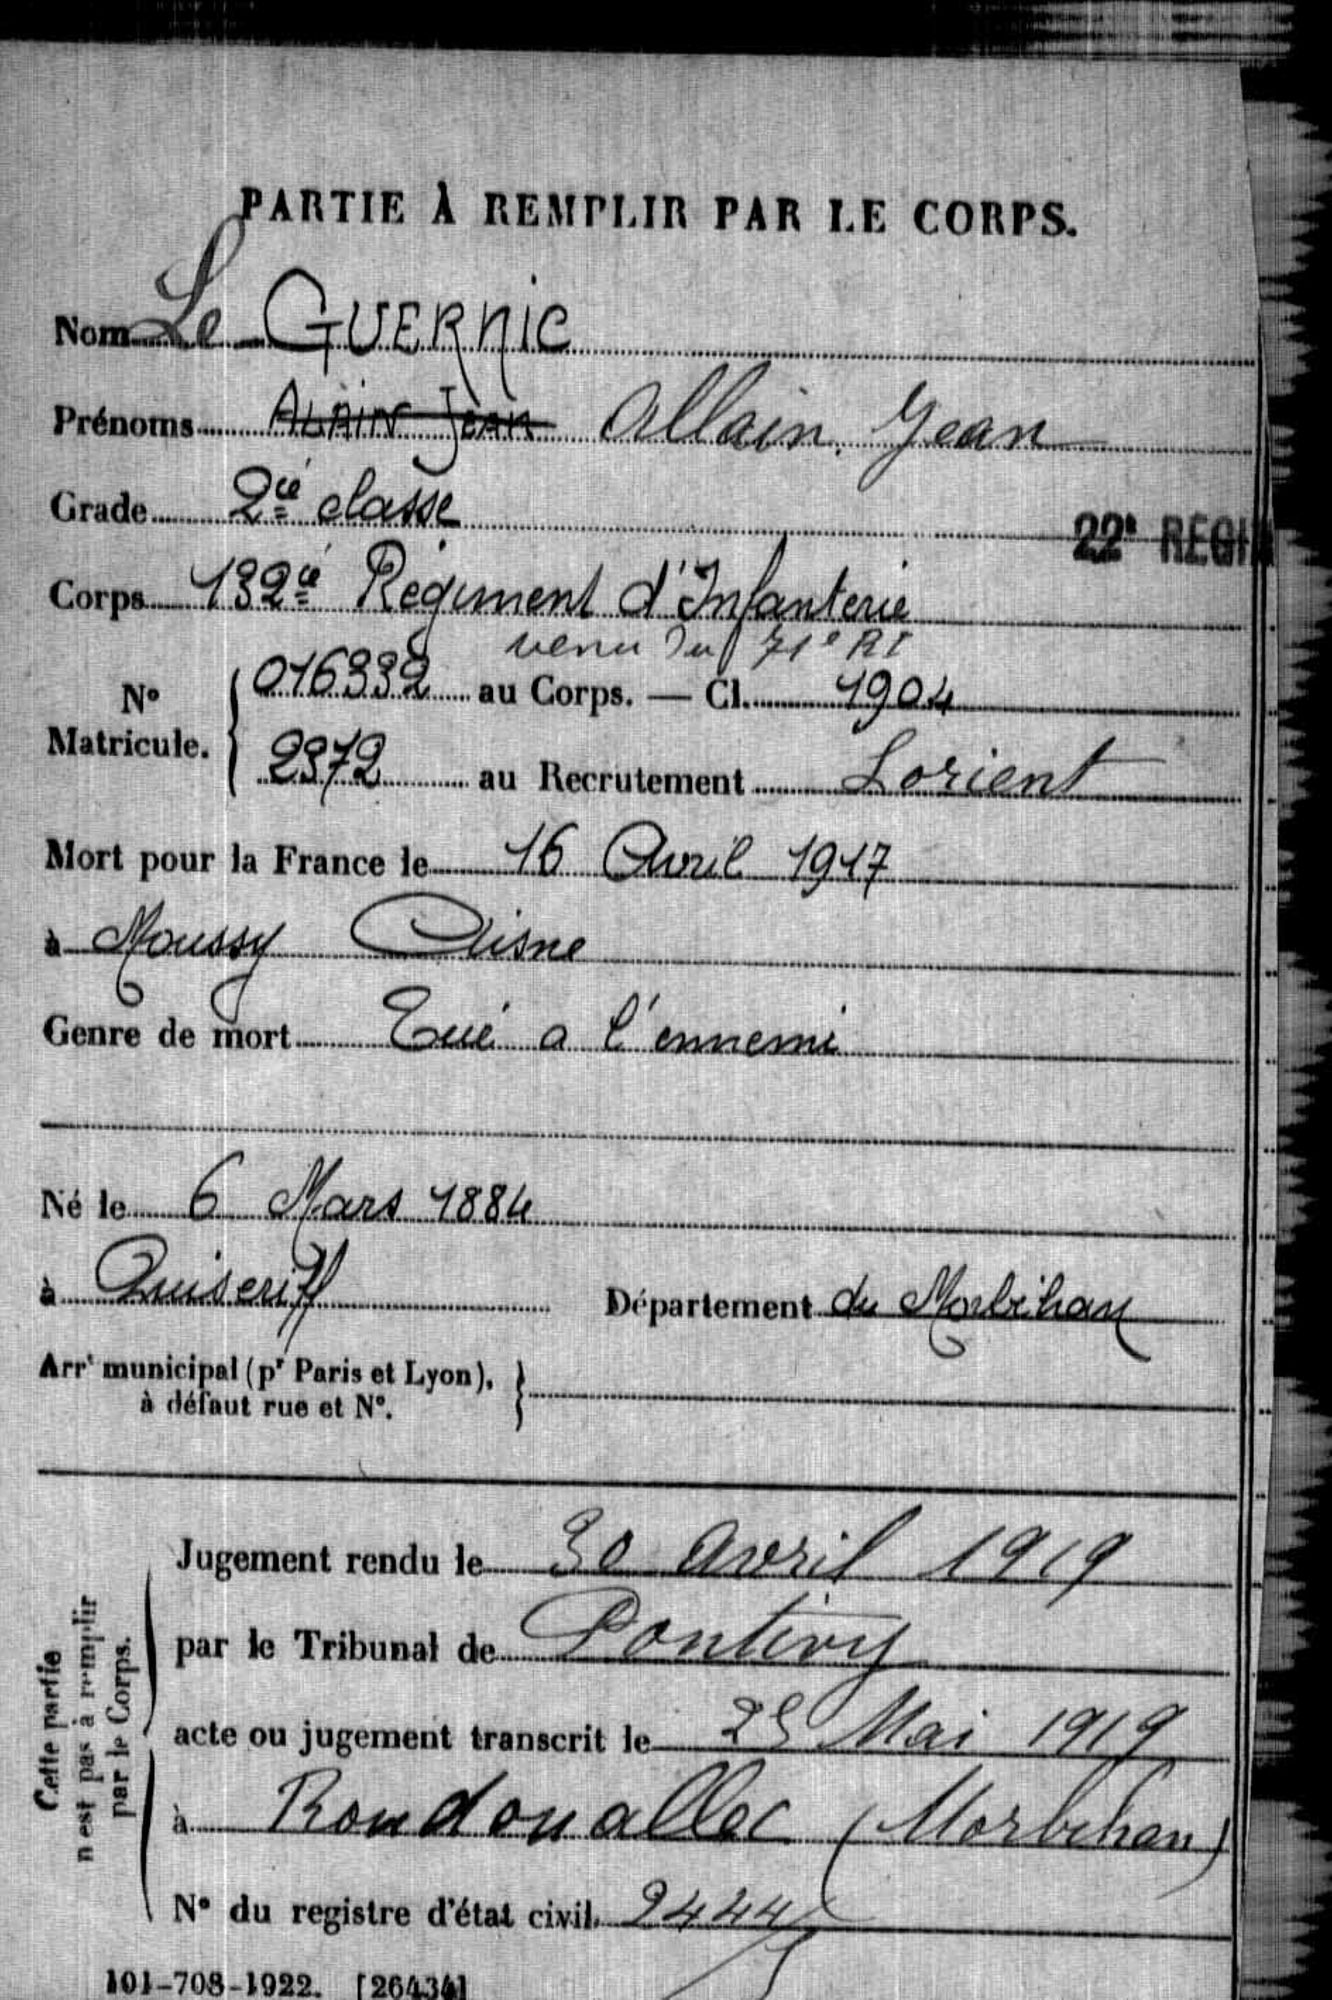 PARTIE À REMPLIR PAR LE CORPS.
Nom Le GUERNIC
Prénoms ALAIN Jean Allain Jean
Grade 2ie classe
22e REGI
Corps 132ie Régiment d'Infanterie
venu du 71e RI
N° Matricule. 016332 au Corps. — Cl. 1904
2372 au Recrutement Lorient
Mort pour la France le 16 Avril 1917
à Moussy Aisne
Genre de mort Tué a l'ennemi
Né le 6 Mars 1884
à Quiseriff Département du Morbihan
Arrt municipal (pr Paris et Lyon),
à défaut rue et N°.
Cette partie
n'est pas à remplir
par le Corps.
Jugement rendu le 30 avril 1919
par le Tribunal de Pontivy
acte ou jugement transcrit le 25 Mai 1919
à Roudouallec (Morbihan)
N° du registre d'état civil.
101-708-1922. [26434]